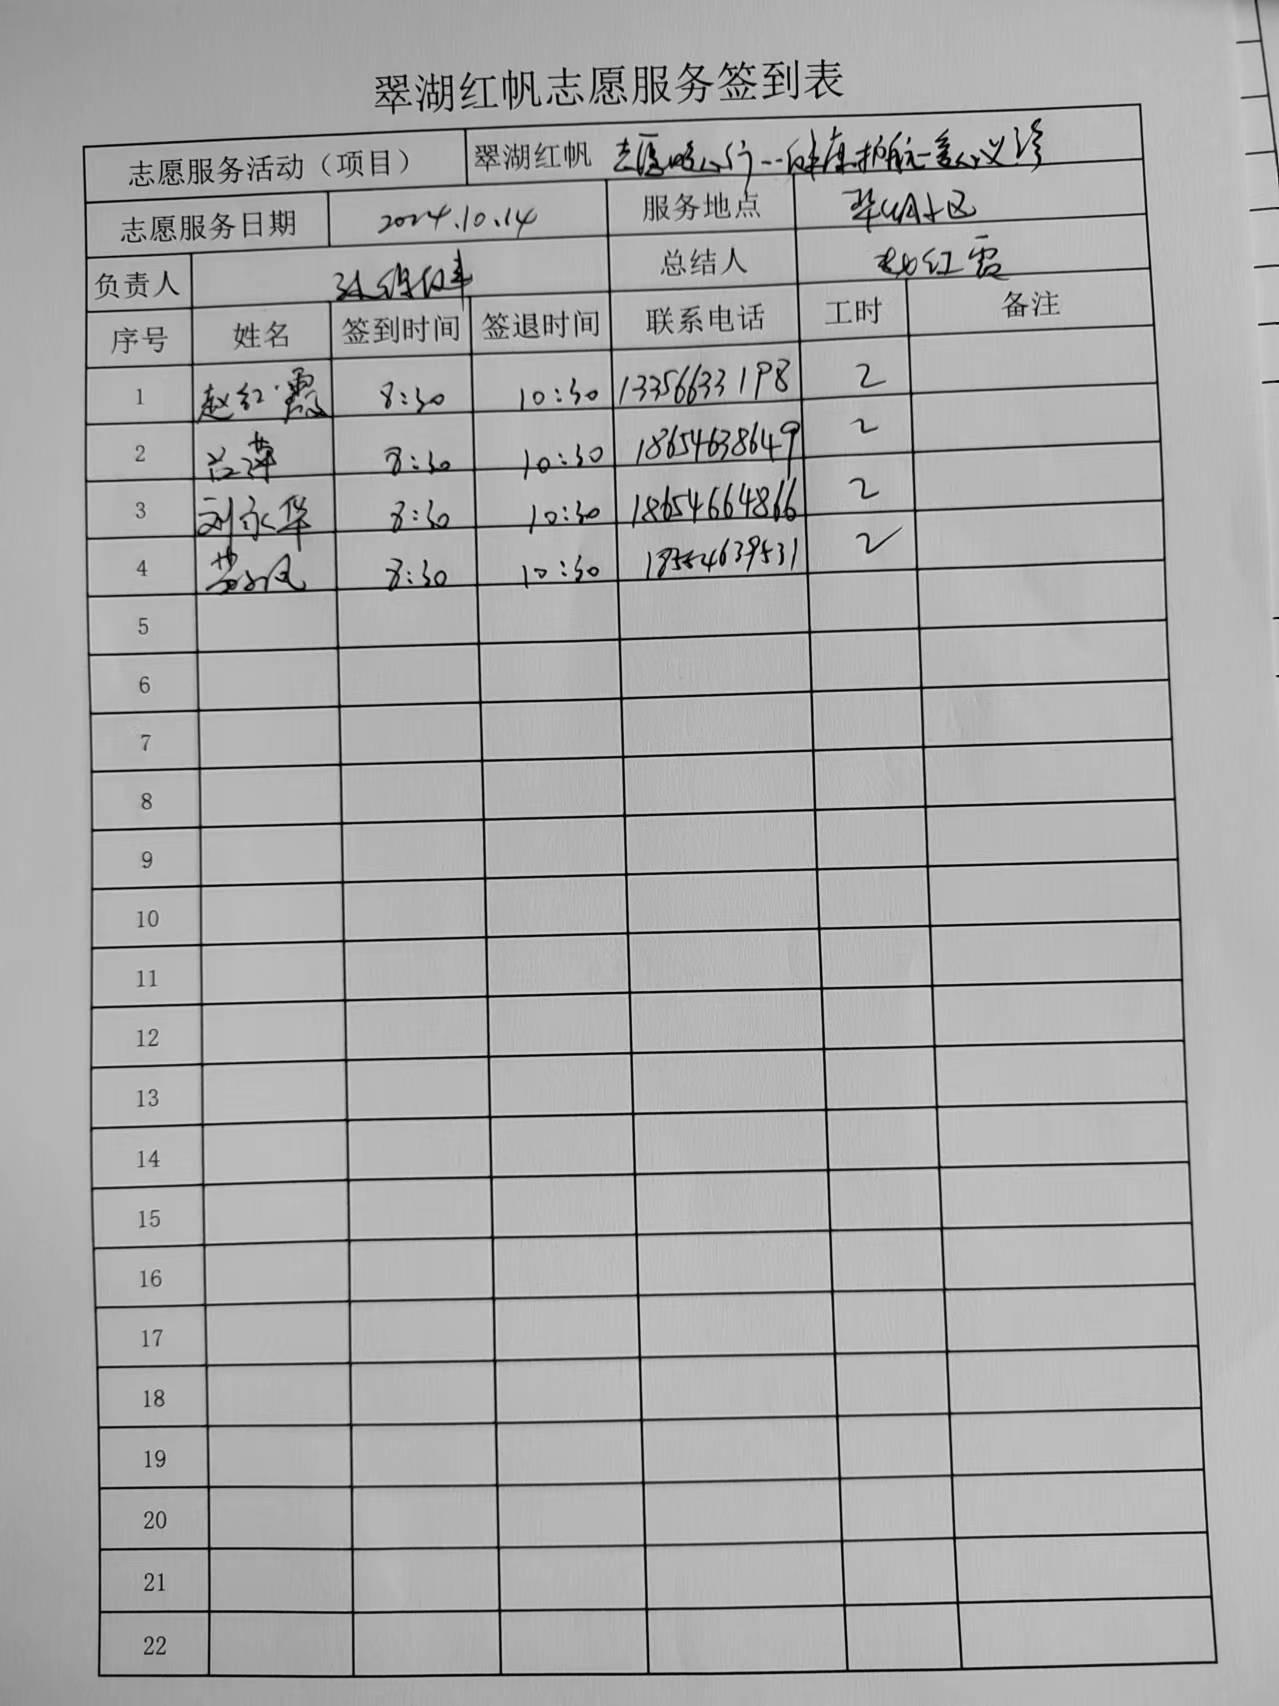 翠湖红帆志愿服务签到表
志愿服务活动（项目） 翠湖红帆 志愿暖心行--健康护航 义诊
志愿服务日期 2024.10.14 服务地点 翠湖小区
负责人 总结人 赵红霞
序号 姓名 签到时间 签退时间 联系电话 工时 备注
1 赵红霞 8:30 10:30 13356633198 2
2 8:30 10:30 18654638649 2
3 刘永华 8:30 10:30 18654664866 2
4 8:30 10:30 18554639531 2
5
6
7
8
9
10
11
12
13
14
15
16
17
18
19
20
21
22